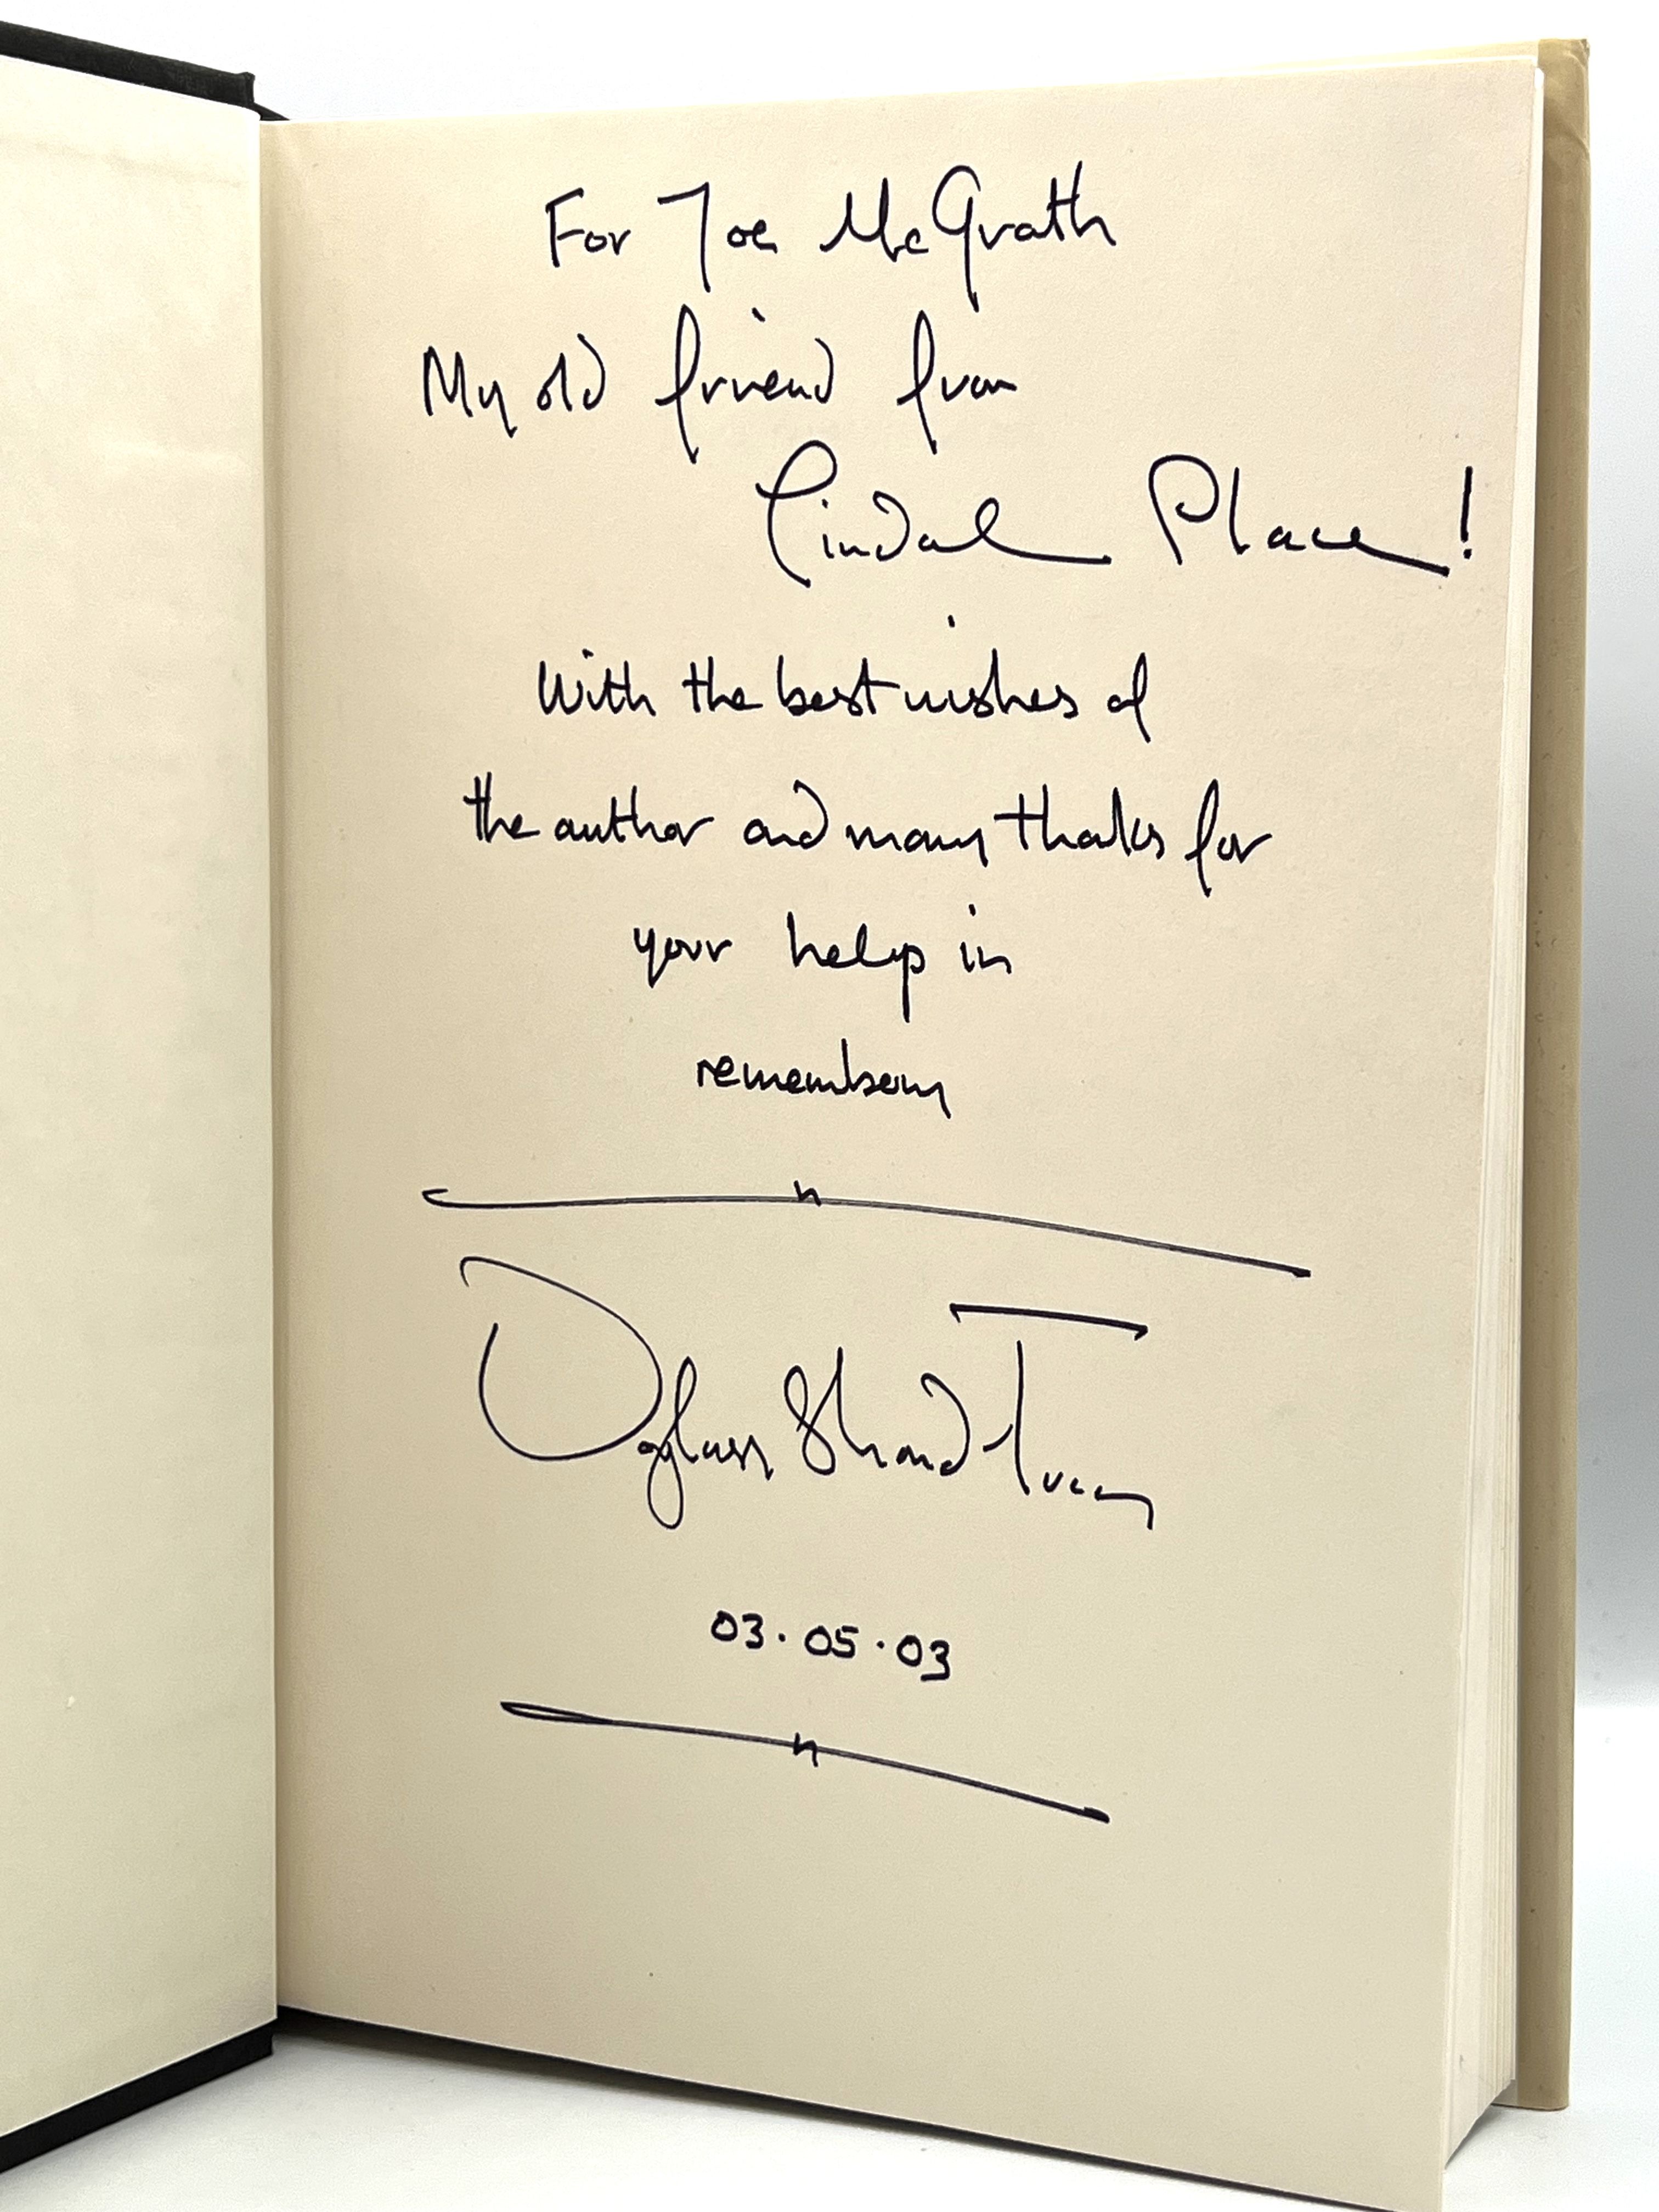 For Joe McGrath
My old friend from
Lindall Place!
With the best wishes of
the author and many thanks for
your help in
remembering
Douglass Shand-Tucci
03.05.03